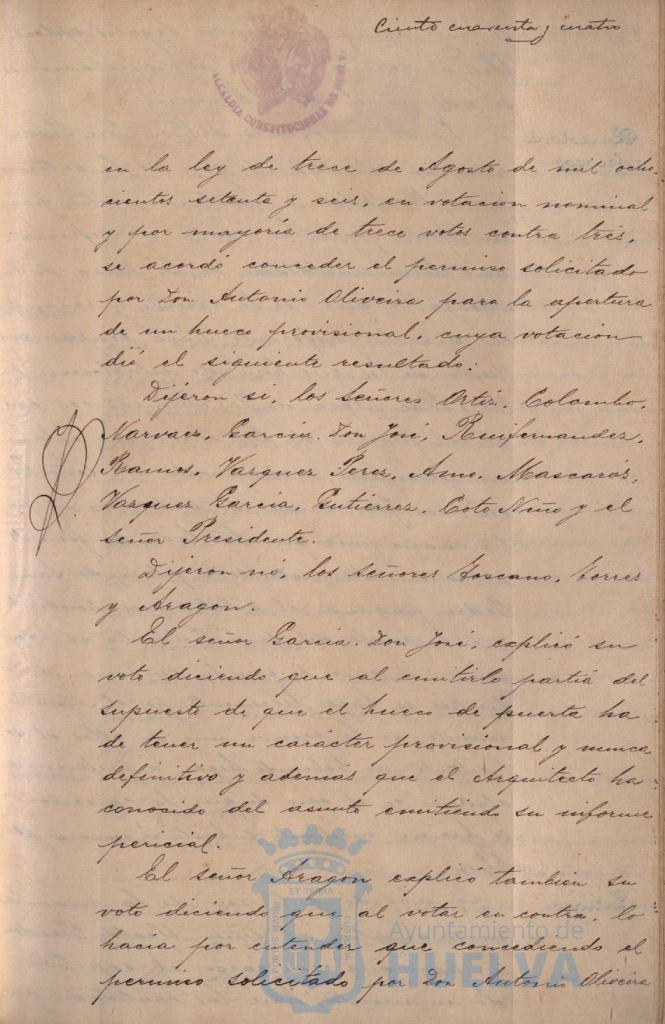 Ciento cuarenta y cuatro
ALCALDIA CONSTITUCIONAL DE HUELVA
en la ley de trece de Agosto de mil ocho-
cientos setenta y seis, en votacion nominal
y por mayoría de trece votos contra tres,
se acordó conceder el permiso solicitado
por Don Antonio Oliveira para la apertura
de un hueco provisional, cuya votacion
dió el siguiente resultado:
Dijeron si, los Señores Ortiz, Colombo,
Narvaez, Garcia Don José, Ruifernandez,
Ramos, Vazquez Perez, Amo, Mascarós,
Vazquez Garcia, Gutierrez, Coto Niño y el
señor Presidente.
Dijeron nó, los señores Toscano, Torres
y Aragon.
El señor Garcia Don José, explicó su
voto diciendo que al emitirlo partiá del
supuesto de que el hueco de puerta ha
de tener un carácter provisional y nunca
definitivo y además que el Arquitecto ha
conocido del asunto emitiendo su informe
pericial.
El señor Aragon explicó tambien su
voto diciendo que al votar en contra, lo
hacia por entender que concediendo el
permiso solicitado por Don Antonio Oliveira
Ayuntamiento de
HUELVA